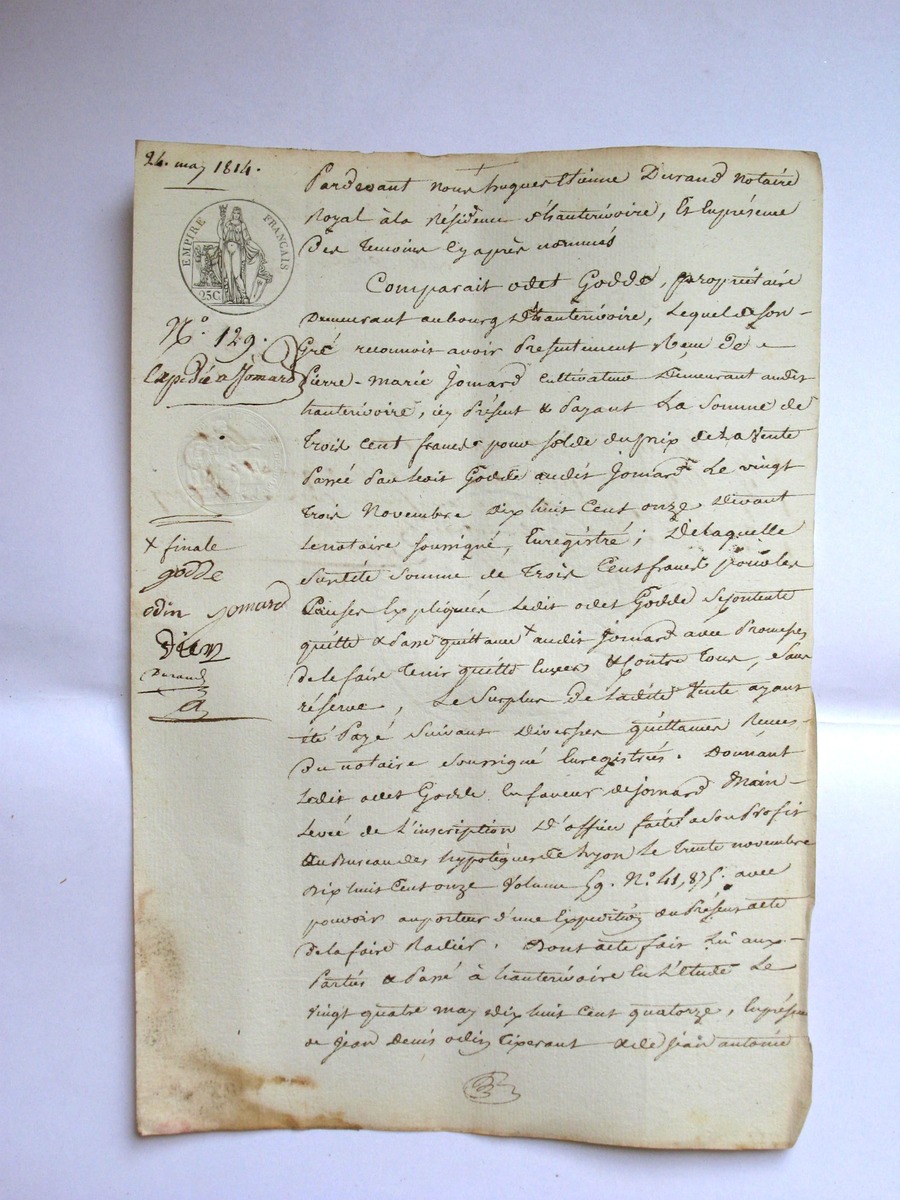 24. may 1814.
EMPIRE FRANÇAIS
25C
N.o 129.
Expédié a Jomard
x finale
godde
odin jomard
Durand
Pardevant nous hugues Etienne Durand notaire
Royal à la Résidence d'hauterivoire, Et En présence
Des Temoins Cy après nommés
Comparait odet Godde, propriétaire
Demeurant au bourg d'hauterivoire, Lequel de Son
Gré reconnois avoir Présentement Reçu De
Pierre-Marie Jomard Cultivateur Demeurant audit
hauterivoire, icy Présent & Payant La Somme de
Trois Cent francs pour solde du prix de La Vente
Passé Par Ledit Godde audit Jomard Le vingt
Trois Novembre Dix huit Cent onze Devant
Le notaire soussigné, Enregistré; De Laquelle
Susdite Somme de Trois Cent francs pour les
Causes Expliquées Ledit odet Godde Se Contente
quitte & Passe quittance x audit Jomard avec Promesse
de le faire Tenir quitte Envers & Contre Tous, Sans
réserve, Le Surplus de Ladite Vente ayant
été Payé Suivant Diverses quittances Reçues
Du notaire Soussigné Enregistrées. Donnant
Ledit odet Godde En faveur de Jomard Main-
Levée de L'inscription D'office faite a Son Profit
au Bureau des hypotèques de Lyon Le Trente novembre
Dix huit Cent onze Volume 59. N.o 41,875. avec
pouvoir au porteur d'une Expedition du Présent acte
de la faire Radier. Dont acte fait Lu aux
Parties & Passé à hauterivoire En L'étude Le
vingt quatre may dix huit Cent quatorze, En présence
de jean Denis odin Tisserant & de jean antoine